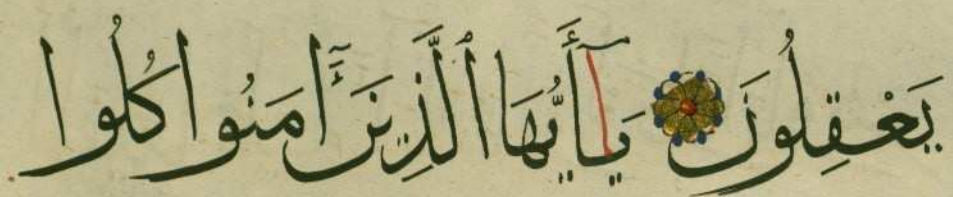 يَعْقِلُونَ يَٰٓأَيُّهَا ٱلَّذِينَ ءَامَنُوا كُلُوا